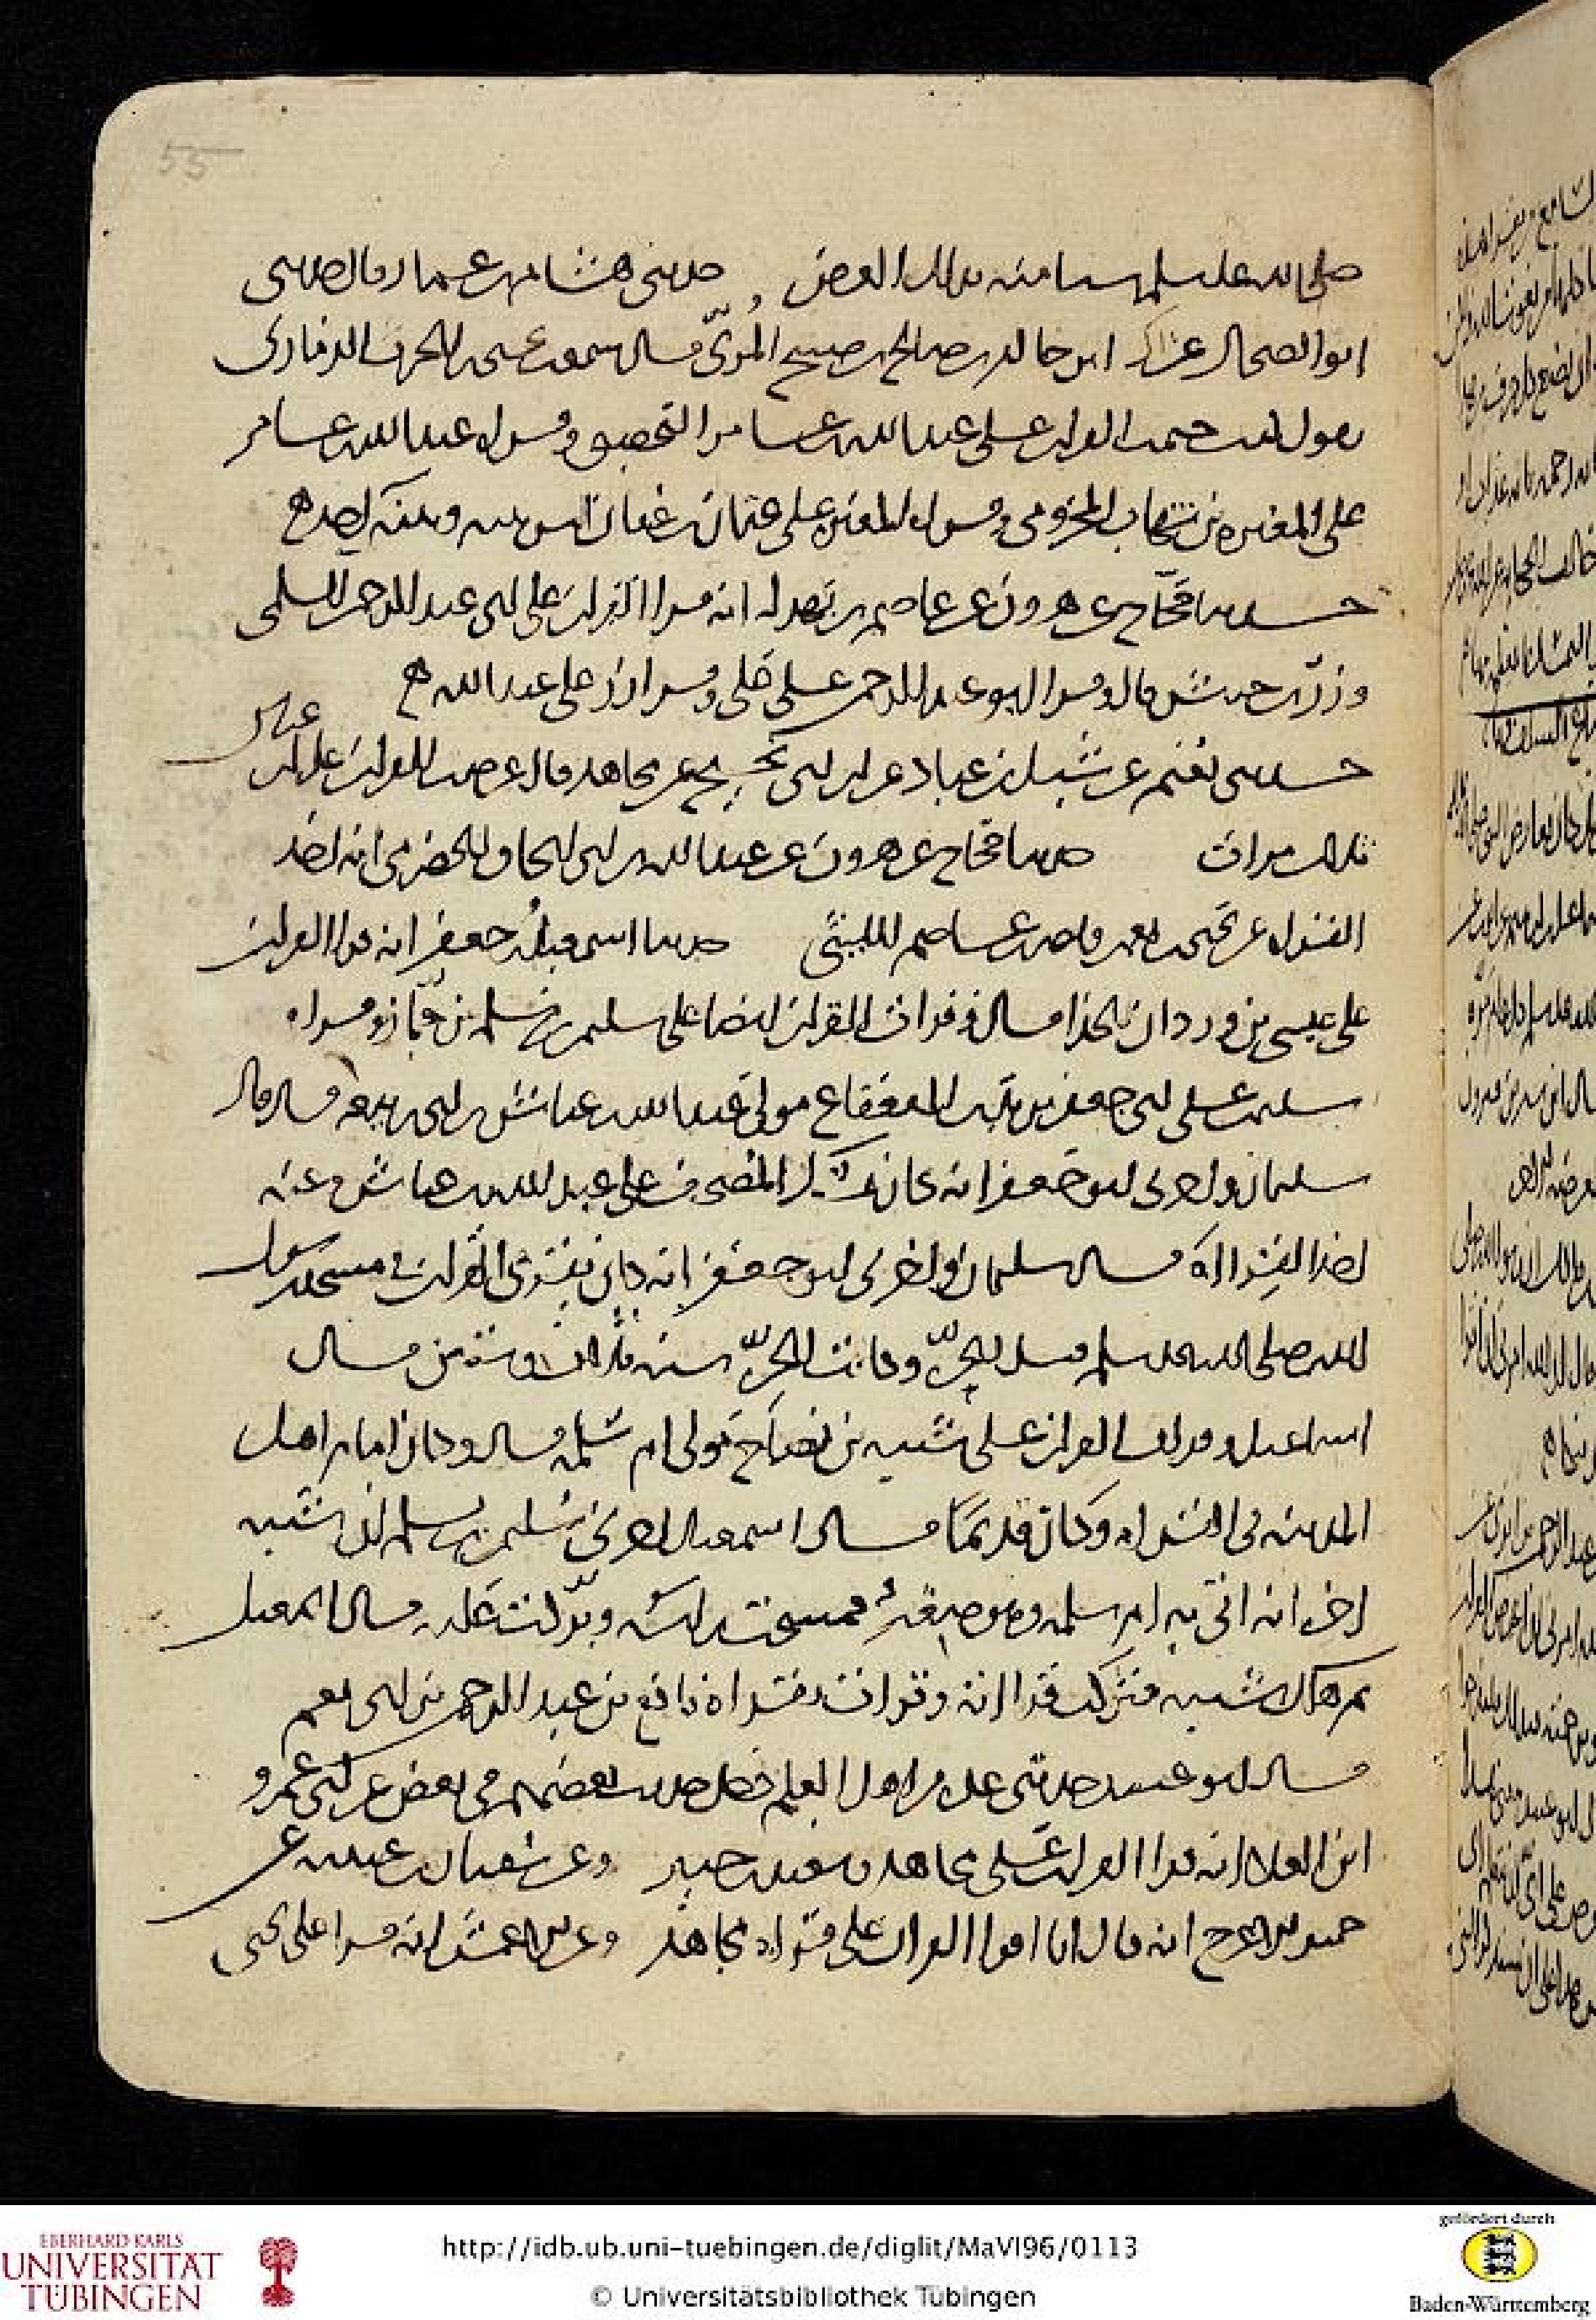 55
صلى الله عليه وسلم شيئا منه بذلك العرض حدثني هشام بن عمار وقال حدثني
ابو الضحاك عراك ابن خالد بن صالح بن صبيح المري قال سمعت يحيى بن الحرث الذماري
يقول كنت ختمت القران على عبد الله بن عامر اليحصبي وقراه عبد الله بن عامر
على المغيره بن شهاب المخزومي وقراه المغيره على عثمان بن عفان ليس بينه وبينه احد
حدثنا حجاج عن هرون عن عاصم بن بهدله انه قرا القران على ابي عبد الرحمن السلمي
وزر بن حبيش قال وقرا ابو عبد الرحمن على علي وقرا زر على عبد الله
عباس
حدثني نعيم عن شبل بن عباد عن ابن ابي نجيح عن مجاهد قال عرضت القران على ابن
ثلاث مرات حدثنا حجاج عن هرون عن عبد الله بن ابي اسحاق الحضرمي انه اخذ
القراه عن يحيى بن يعمر ونصر بن عاصم الليثي حدثنا اسمعيل بن جعفر انه قرا القران
على عيسى بن وردان الحذا قال وقرات القران ايضا على سليمن بن مسلم بن جماز وقراه
سليمن على ابي جعفر يزيد بن القعقاع مولى عبد الله بن عياش بن ابي ربيعه قال قال
سليمان واخبرني ابو جعفر انه كان يمسك المصحف على عبد الله بن عياش وعنه
اخذ القراة قال سليمان واخبرني ابو جعفر انه كان يقرئ القران في مسجد رسول
الله صلى الله عليه وسلم قبل الحرة وكانت الحرة سنه ثلاث وستين قال
اسماعيل وقرات القران على شيبه بن نصاح مولى ام سلمه قال وكان امام اهل
المدينه في القراه وكان قديما قال اسمعيل اخبرني سليمن بن مسلم ان شيبه
اخبره انه اتي به ام سلمه وهو صغير فمسحت راسه وبركت عليه قال اسمعيل
ثم هلك شيبه فتركت قراته وقرات بقراه نافع بن عبد الرحمن بن ابي نعيم
قال ابو عبيد حدثني عده من اهل العلم دخل حديث بعضهم في بعض عن ابي عمرو
ابن العلا انه قرا القران على مجاهد وسعيد بن جبير وعن سفيان بن عيينه عن
حميد الاعرج انه قال انا اقرا القران على قراه مجاهد وعن الاعمش انه قرا على يحيى
http://idb.ub.uni-tuebingen.de/diglit/MaVI96/0113
© Universitätsbibliothek Tübingen
EBERHARD KARLS
UNIVERSITÄT
TÜBINGEN
gefördert durch
Baden-Württemberg